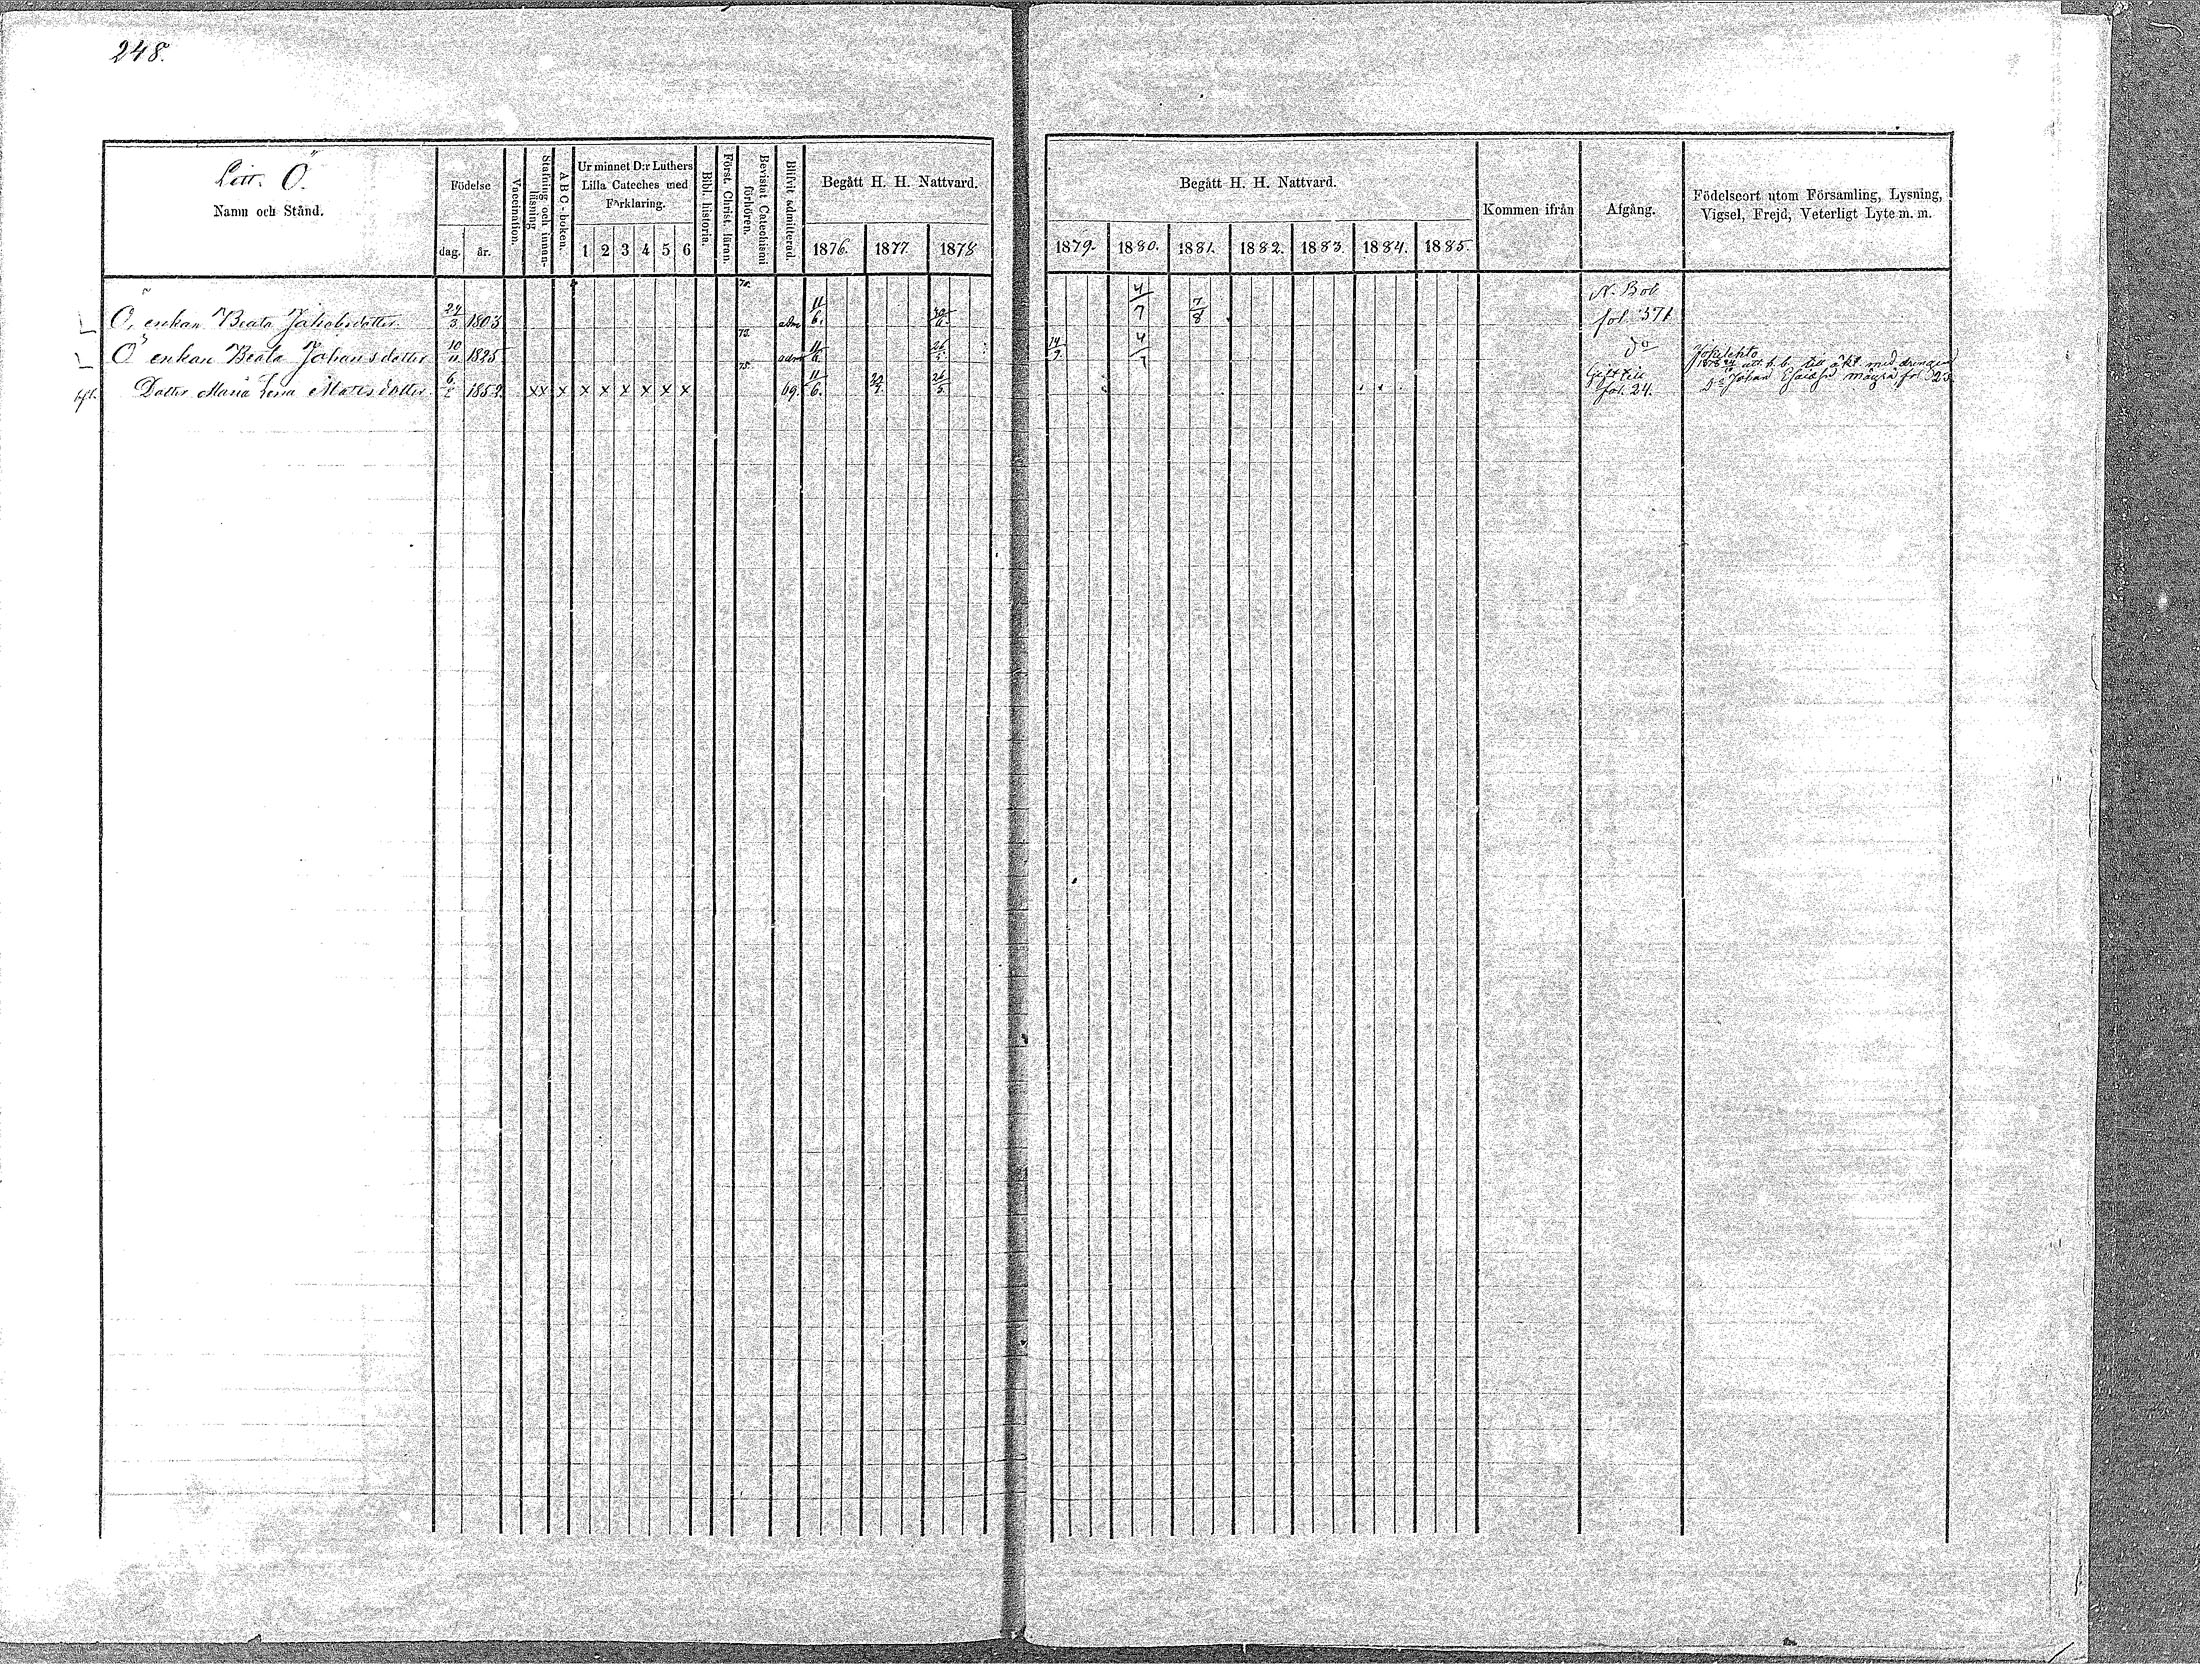 248.
Litt. Ö.
Namn och Stånd.
Födelse
dag. år.
Vaccination.
Stafning och innan-läsning
A B C - boken.
Ur minnet D:r Luthers
Lilla Cateches med
Förklaring.
1 2 3 4 5 6
Bibl. historia.
Först. Christ. läran.
Bevistat Catechismi förhören.
Blifvit admitterad.
Begått H. H. Nattvard.
1876. 1877. 1878
Begått H. H. Nattvard.
1879. 1880. 1881. 1882. 1883. 1884. 1885.
Kommen ifrån
Afgång.
Födelseort utom Församling, Lysning,
Vigsel, Frejd, Veterligt Lyte m. m.
Ö, enkan Beata Jakobsdotter. 24/3 1803 70. adm 11/6. 4/7 7/8 N. Bok fol. 371
Ö enkan Beata Johansdotter 10/11 1825 73. adm 11/6 26/5 14/9 4/7 do
Dotter Maria Lena Matts dotter. 6/2 1852. x x x x x x x x x 75. 69. 11/6. 22/7 26/5 Gift till fol. 24.
till äkt. med drängen
Johan